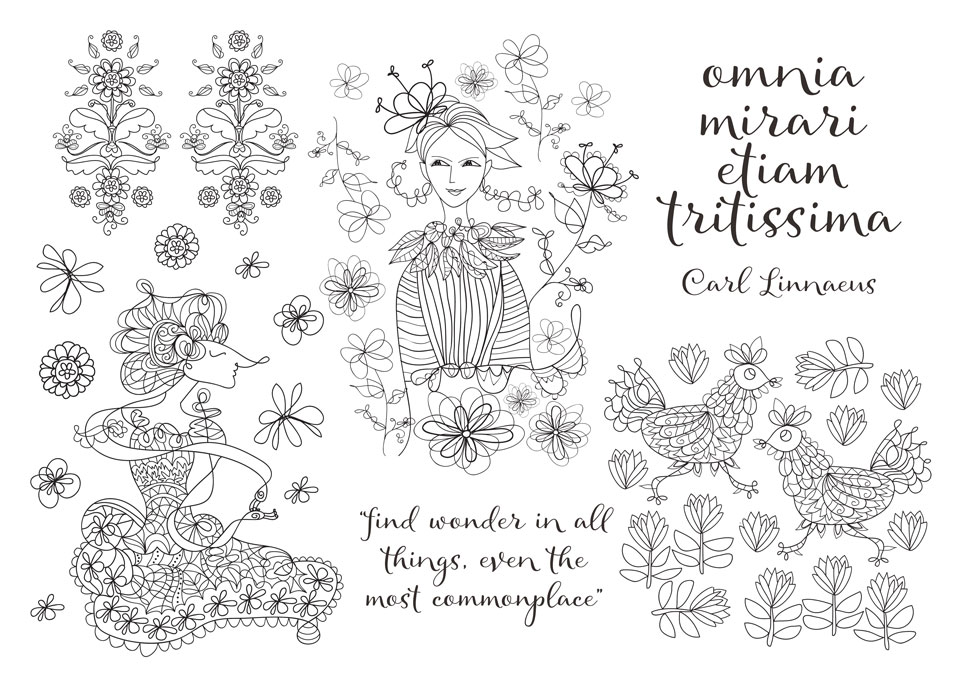 omnia
mirari
etiam
tritissima
Carl Linnaeus
"find wonder in all
things, even the
most commonplace"